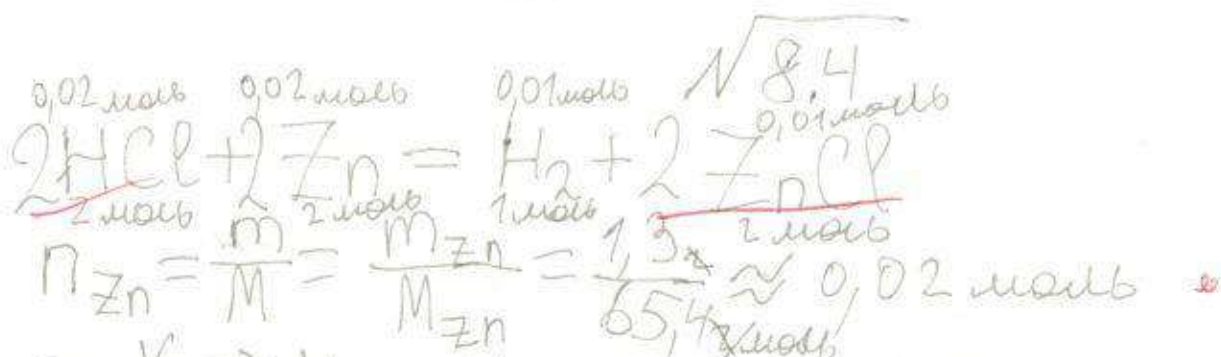 √8.4
0,02 моль 0,02 моль 0,01 моль 0,01 моль
2HCl + 2Zn = H₂ + 2ZnCl
2 моль 2 моль 1 моль 2 моль
n Zn = m/M = m Zn / M Zn = 1,3 г / 65,4 г/моль ≈ 0,02 моль